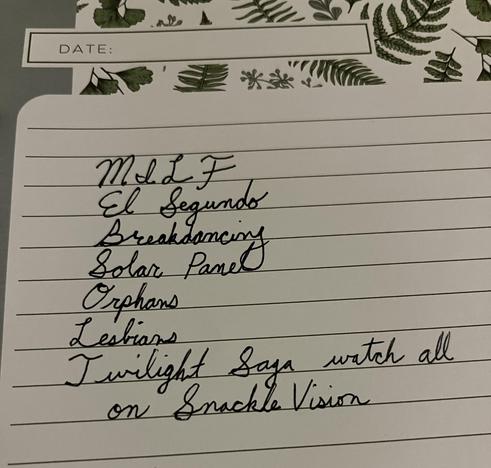 DATE:
MILF
El Segundo
Breakdancing
Solar Panel
Orphans
Lesbians
Twilight Saga watch all
on Snackle Vision